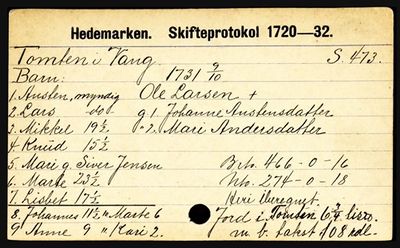 Hedemarken. Skifteprotokol 1720—32.
Tomten i Vang. S. 473.
Barn: 1731 9/10
1. Austen, myndig Ole Larsen +
2. Lars -do- g 1. Johanne Austensdatter
3. Mikkel 19½ " 2. Mari Andersdatter
4. Knud 15½
5. Mari g. Siver Jensen Brb. 466-0-16
6. Marte 23½ Nb. 274-0-18
7. Lisbet 17½ Heri uberegnet
8. Johannes 11½ " Marte 6 Jord i Tomten
9 Anne 9 " Kari 2. m. b. takst 108 rdl.